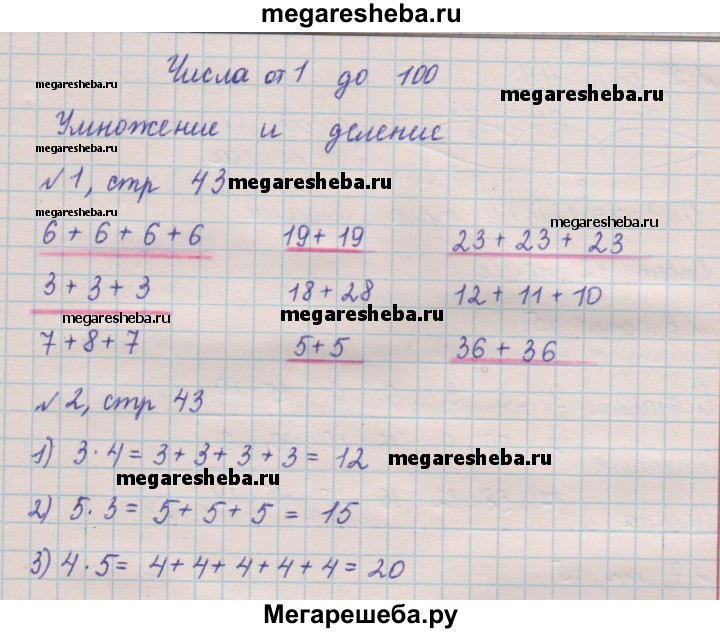 megaresheba.ru
Числа от 1 до 100
megaresheba.ru
megaresheba.ru
Умножение и деление
megaresheba.ru
№1, стр 43
megaresheba.ru
megaresheba.ru
megaresheba.ru
6 + 6 + 6 + 6 19 + 19 23 + 23 + 23
3 + 3 + 3 18 + 28 12 + 11 + 10
megaresheba.ru
megaresheba.ru
megaresheba.ru
7 + 8 + 7 5 + 5 36 + 36
№2, стр 43
1) 3 · 4 = 3 + 3 + 3 + 3 = 12
megaresheba.ru
megaresheba.ru
2) 5 · 3 = 5 + 5 + 5 = 15
3) 4 · 5 = 4 + 4 + 4 + 4 + 4 = 20
Мегарешеба.ру